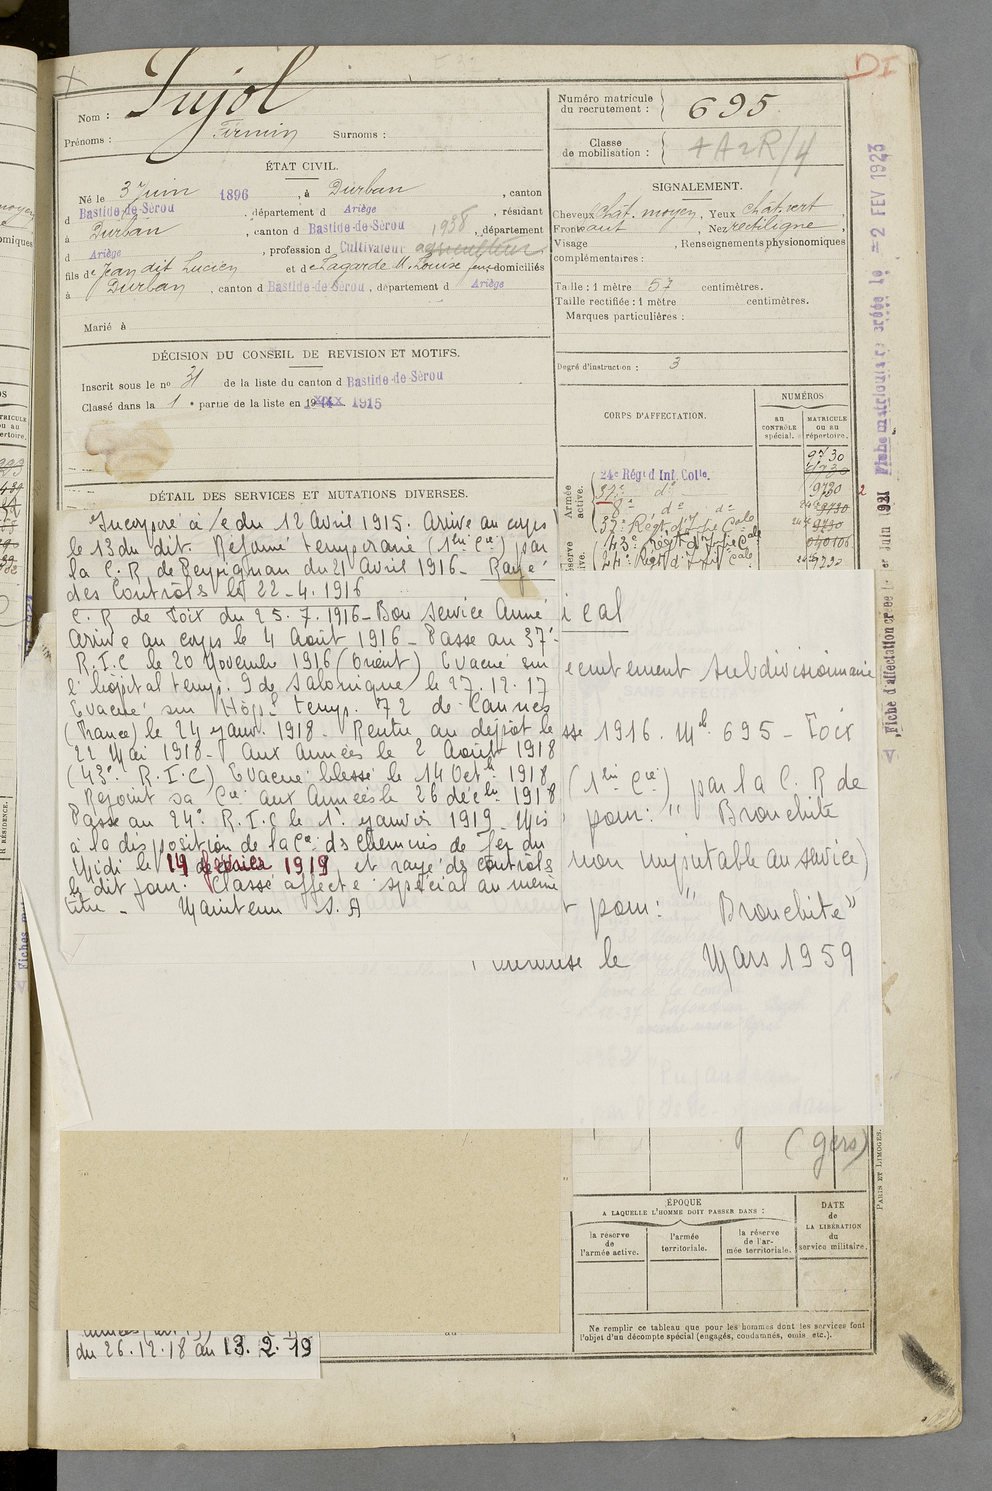 DI
Nom : Pujol
Prénoms : Firmin Surnoms :
ÉTAT CIVIL.
Né le 3 Juin 1896, à Durban, canton
d Bastide-de-Sérou, département d Ariège, résidant
à Durban, canton d Bastide-de-Sérou 1938, département
d Ariège, profession d Cultivateur agriculteur
fils de Jean dit Lucien et de Lagarde M. Louise domiciliés
à Durban, canton d Bastide-de-Sérou, département d Ariège
Marié à
DÉCISION DU CONSEIL DE REVISION ET MOTIFS.
Inscrit sous le n° 31 de la liste du canton d Bastide-de-Sérou
Classé dans la 1e partie de la liste en 1915
DÉTAIL DES SERVICES ET MUTATIONS DIVERSES.
Incorporé à /c du 12 Avril 1915. Arrivé au corps
le 13 du dit. Réformé temporaire (1ère Cie) par
la C. R de Perpignan du 21 Avril 1916 - Rayé
des Contrôls le 22-4.1916
C. R de Foix du 25.7.1916 - Bon service Armé
Arrivé au corps le 4 Août 1916 - Passé au 37e
R.I.C le 20 Novembre 1916 (Orient) Evacué sur
l'hôpital temp. 9 de Salonique le 27.12.17
Evacué sur Hôpl temp. 72 de Cannes
(France) le 24 janv. 1918 - Rentré au dépôt le
22 Mai 1918 - Aux Armées le 2 Août 1918
(43e R.I.C) Evacué blessé le 14 Octbre 1918
Rejoint sa Cie aux Armées le 26 décbre 1918
Passé au 24e R.I.C le 1er janvier 1919 - Mis
à la disposition de la Cie ds Chemins de fer du
Midi le 14 février 1919, et rayé ds contrôls
le dit jour. Classé affecté spécial au même
titre - Maintenu S.A
du 26.12.18 au 13.2.19
Numéro matricule du recrutement : 695
Classe de mobilisation :
SIGNALEMENT.
Cheveux chât. moyen, Yeux chât. vert,
Front haut, Nez rectiligne,
Visage , Renseignements physionomiques
complémentaires :
Taille : 1 mètre 57 centimètres.
Taille rectifiée : 1 mètre centimètres.
Marques particulières :
Degré d'instruction : 3
CORPS D'AFFECTATION.
NUMÉROS
AU CONTRÔLE spécial.
MATRICULE OU AU répertoire.
Armée active.
24e Rég.t d Inf. Colle.
37e d°
8e d° d°
37e Régt d'Inf Cale
43e Régt d'Infie Cale
24e Régt d'Infie Cale
9730
ical
ecrutement subdivisionnaire
sse 1916. Mle 695 - Foix
(1ère Cie) par la C. R de
pour: " Bronchite
non imputable au service)
t pour: " Bronchite"
le Mars 1959
(Gers)
ÉPOQUE
A LAQUELLE L'HOMME DOIT PASSER DANS :
la réserve de l'armée active.
l'armée territoriale.
la réserve de l'armée territoriale.
DATE de LA LIBÉRATION du service militaire.
Ne remplir ce tableau que pour les hommes dont les services font
l'objet d'un décompte spécial (engagés, condamnés, omis etc.).
Fiche matricule créée le 2 FEV 1923
PARIS ET LIMOGES.